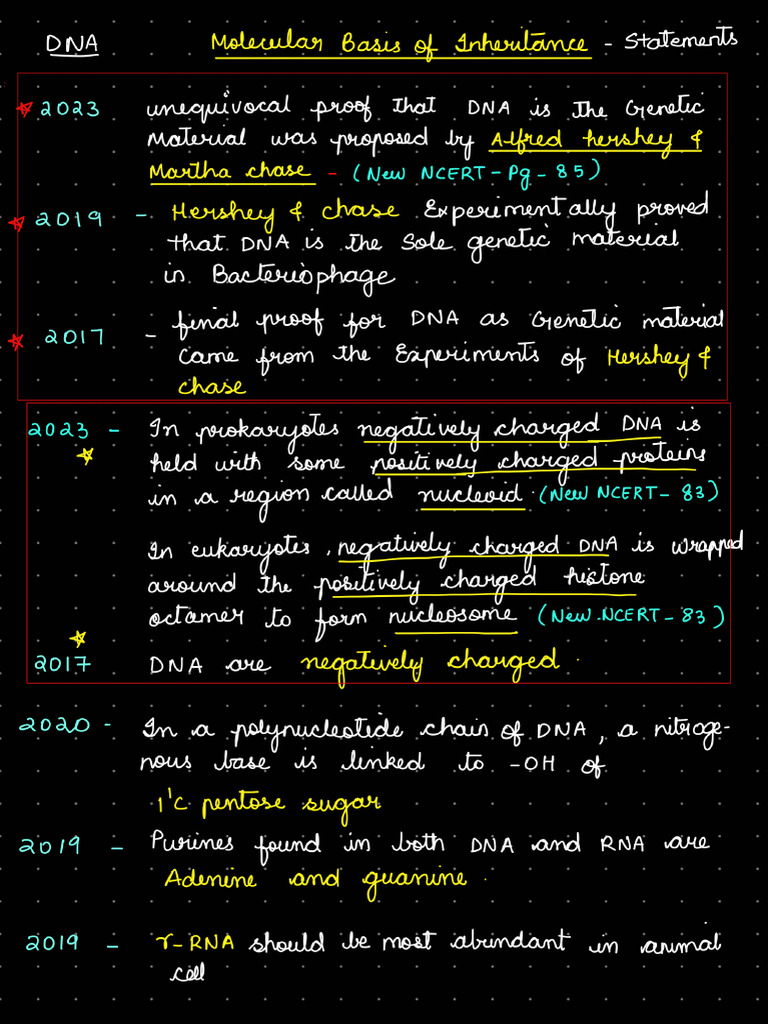 DNA Molecular Basis of Inheritance - Statements
2023 unequivocal proof that DNA is the Genetic
Material was proposed by Alfred hershey &
Martha chase - (New NCERT - Pg - 85)
2019 - Hershey & chase Experimentally proved
that DNA is the Sole genetic material
in Bacteriophage
2017 - final proof for DNA as Genetic material
came from the Experiments of Hershey &
chase
2023 - In prokaryotes negatively charged DNA is
held with some positively charged proteins
in a region called nucleoid. (New NCERT - 83)
In eukaryotes, negatively charged DNA is wrapped
around the positively charged histone
octamer to form nucleosome (New.NCERT - 83)
2017 DNA are negatively charged.
2020 - In a polynucleotide chain of DNA, a nitroge-
nous base is linked to -OH of
1'C pentose sugar
2019 - Purines found in both DNA and RNA are
Adenine and guanine.
2019 - r-RNA should be most abundant in animal
cell